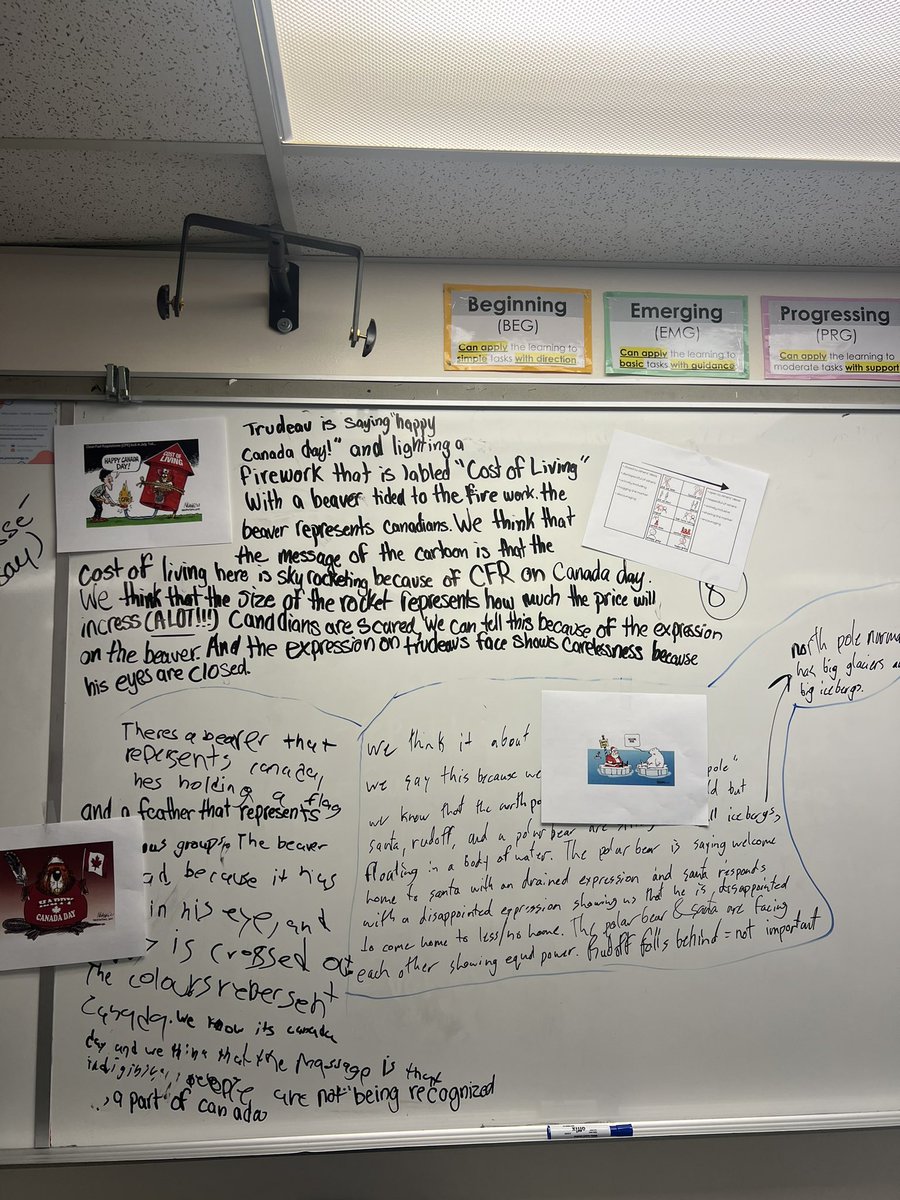 Beginning
(BEG)
Can apply the learning to
simple tasks with direction
Emerging
(EMG)
Can apply the learning to
basic tasks with guidance
Progressing
(PRG)
Can apply the learning to
moderate tasks with support
Trudeau is saying "happy
Canada day!" and lighting a
firework that is labled "Cost of Living"
With a beaver tided to the fire work. the
beaver represents canadians. We think that
the message of the cartoon is that the
cost of living here is sky rocketing because of CFR on Canada day.
We think that the size of the rocket represents how much the price will
incress (ALOT!!!) Canadians are scared, We can tell this because of the expression
on the beaver. And the expression on trudeaus face shows carelessness because
his eyes are closed.
HAPPY CANADA
DAY!
COST OF
LIVING
8
north pole
has big glaciers
big icebergs.
Theres a beaver that
represents canada,
hes holding a flag
and a feather that represents
groups. The beaver
because it has
in his eye, and
is crossed out
The colours rebersent
Canada. We know its canada
day and we think that the massage is that
people are not being recognized
a part of canada
HAPPY
CANADA DAY
we think it about
we say this because we pole"
we know that the north but
santa, rudoff, and a polar bear are icebergs,
floating in a body of water. The polar bear is saying welcome
home to santa with an drained expression and santa responds
with a disappointed expression showing us that he is disappointed
to come home to less/no home. The polar bear & santa are facing
each other showing equal power. Rudoff falls behind = not important